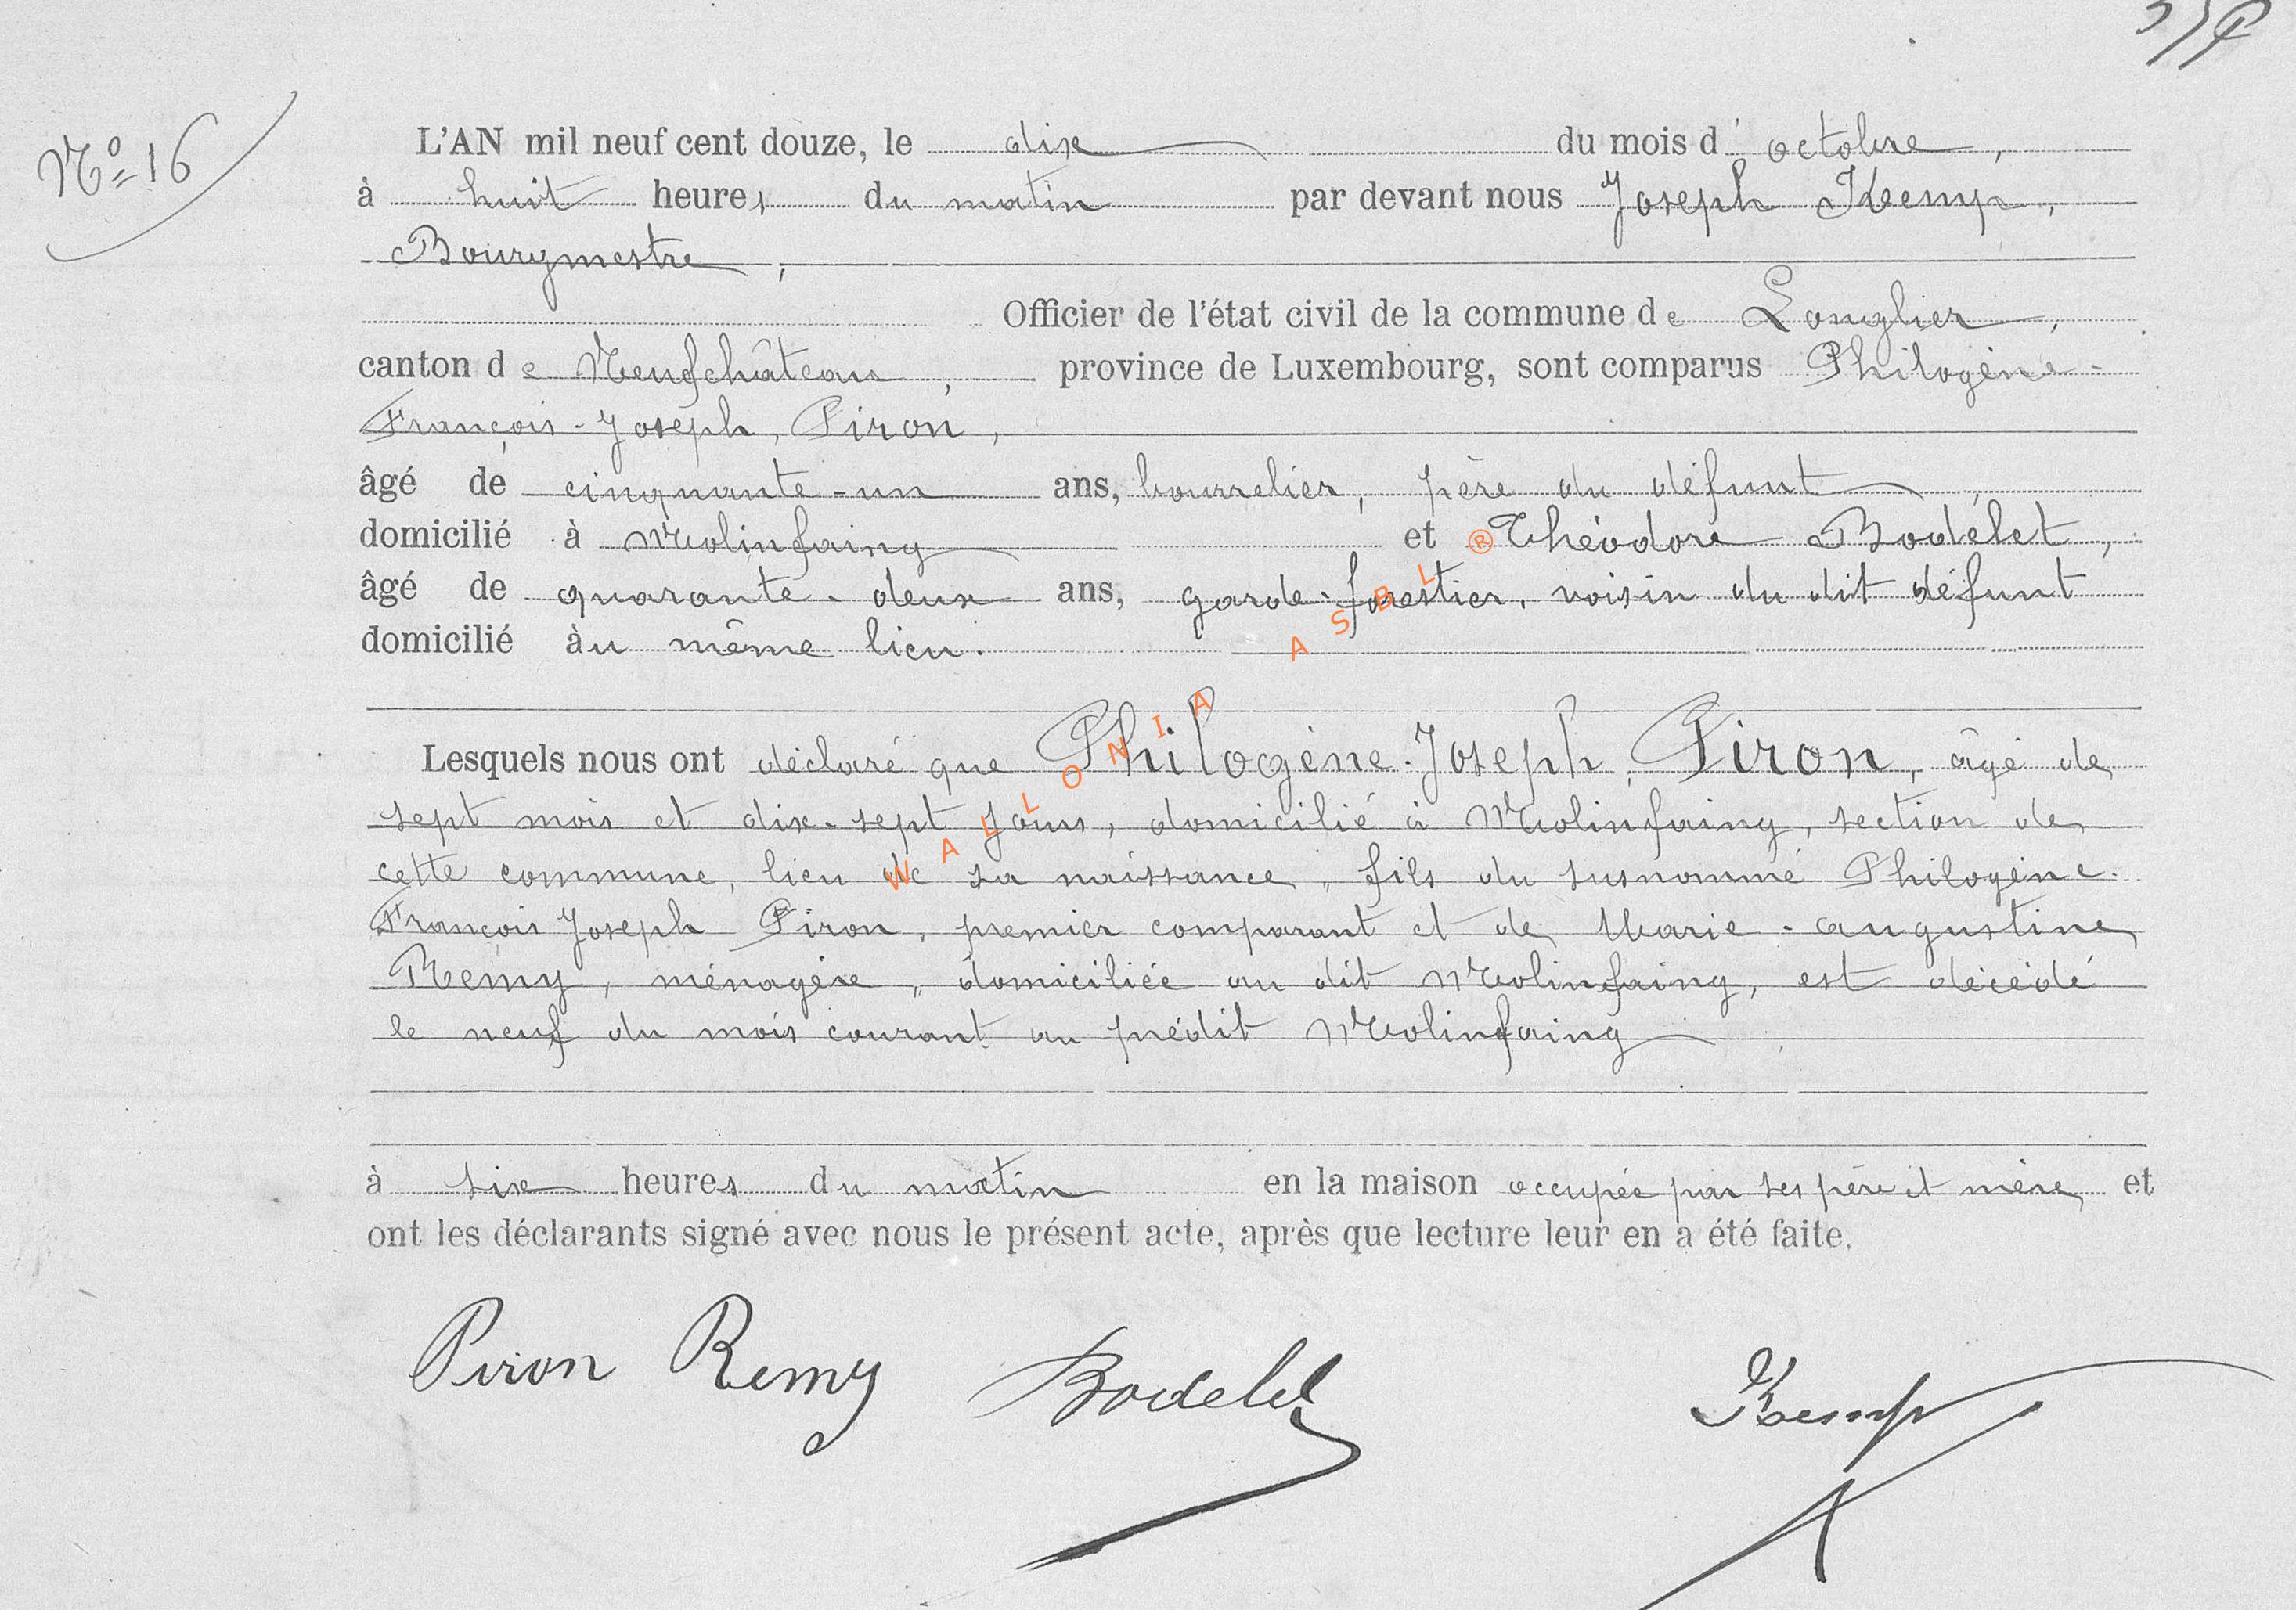 Nº 16
L'AN mil neuf cent douze, le dix du mois d'octobre,
à huit heures du matin par devant nous Joseph Kemp,
Bourgmestre,
Officier de l'état civil de la commune de Longlier,
canton de Neufchâteau, province de Luxembourg, sont comparus Philogène-
François-Joseph, Piron,
âgé de cinquante-un ans, bourrelier, père du défunt,
domicilié à Molinfaing et Théodore Bodélet,
âgé de quarante-deux ans, garde-forestier, voisin du dit défunt
domicilié àu même lieu.
Lesquels nous ont déclaré que Philogène-Joseph, Piron, âgé de
sept mois et dix-sept jours, domicilié à Molinfaing, section de
cette commune, lieu de sa naissance, fils du susnommé Philogène-
François Joseph Piron, premier comparant et de Marie-Augustine
Remy, ménagère, domiciliée au dit Molinfaing, est décédé
le neuf du mois courant au prédit Molinfaing
à six heures du matin en la maison occupée par ses père et mère et
ont les déclarants signé avec nous le présent acte, après que lecture leur en a été faite.
Piron Remy Bodelet Kemp
WALLONIA ASBL ®